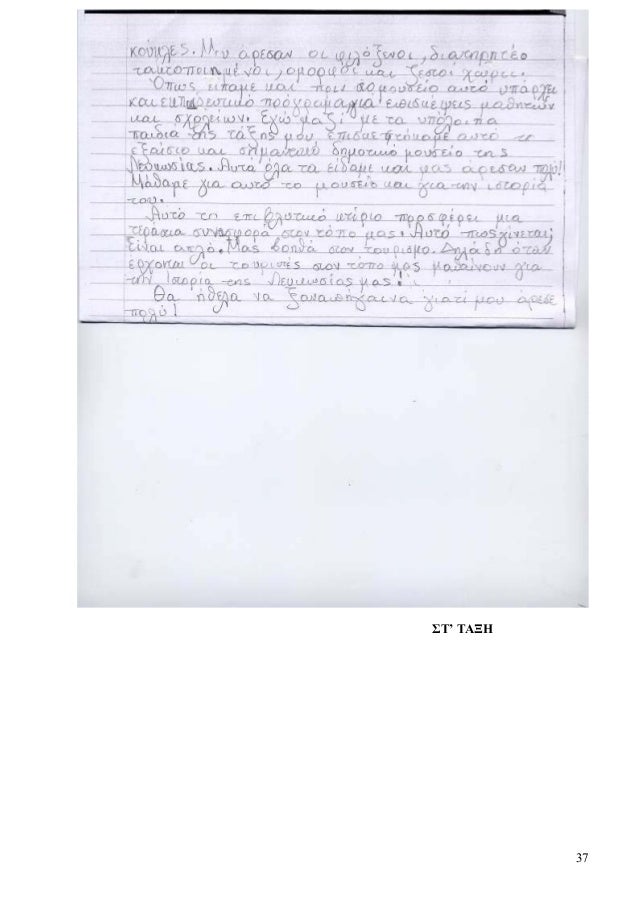 κούκλες. Μου άρεσαν οι φιλόξενοι, διατηρητέο
ταυτοποιημένοι, όμορφοι και ζεστοί χώροι.
Όπως είπαμε και πριν στο μουσείο αυτό υπάρχει
και εκπαιδευτικό πρόγραμμα για επισκέψεις μαθητών
και σχολείων. Εγώ μαζί με τα υπόλοιπα
παιδία της τάξης μου επισκεφτήκαμε αυτό το
εξαίσιο και σημαντικό δημοτικό μουσείο της
Λευκωσίας. Αυτά όλα τα είδαμε και μας άρεσαν πολύ!
Μάθαμε για αυτό το μουσείο και για την ιστορία
του.
Αυτό το επιβλητικό κτίριο προσφέρει μια
τεράστια συνεισφορά στον τόπο μας. Αυτό πως γίνεται;
Είναι απλό. Μας βοηθά στον τουρισμό. Δηλαδή όταν
έρχονται οι τουρίστες στον τόπο μας μαθαίνουν για
την Ιστορία της Λευκωσίας μας!
Θα ήθελα να ξαναπήγαινα γιατί μου άρεσε
πολύ!
ΣΤ’ ΤΑΞΗ
37